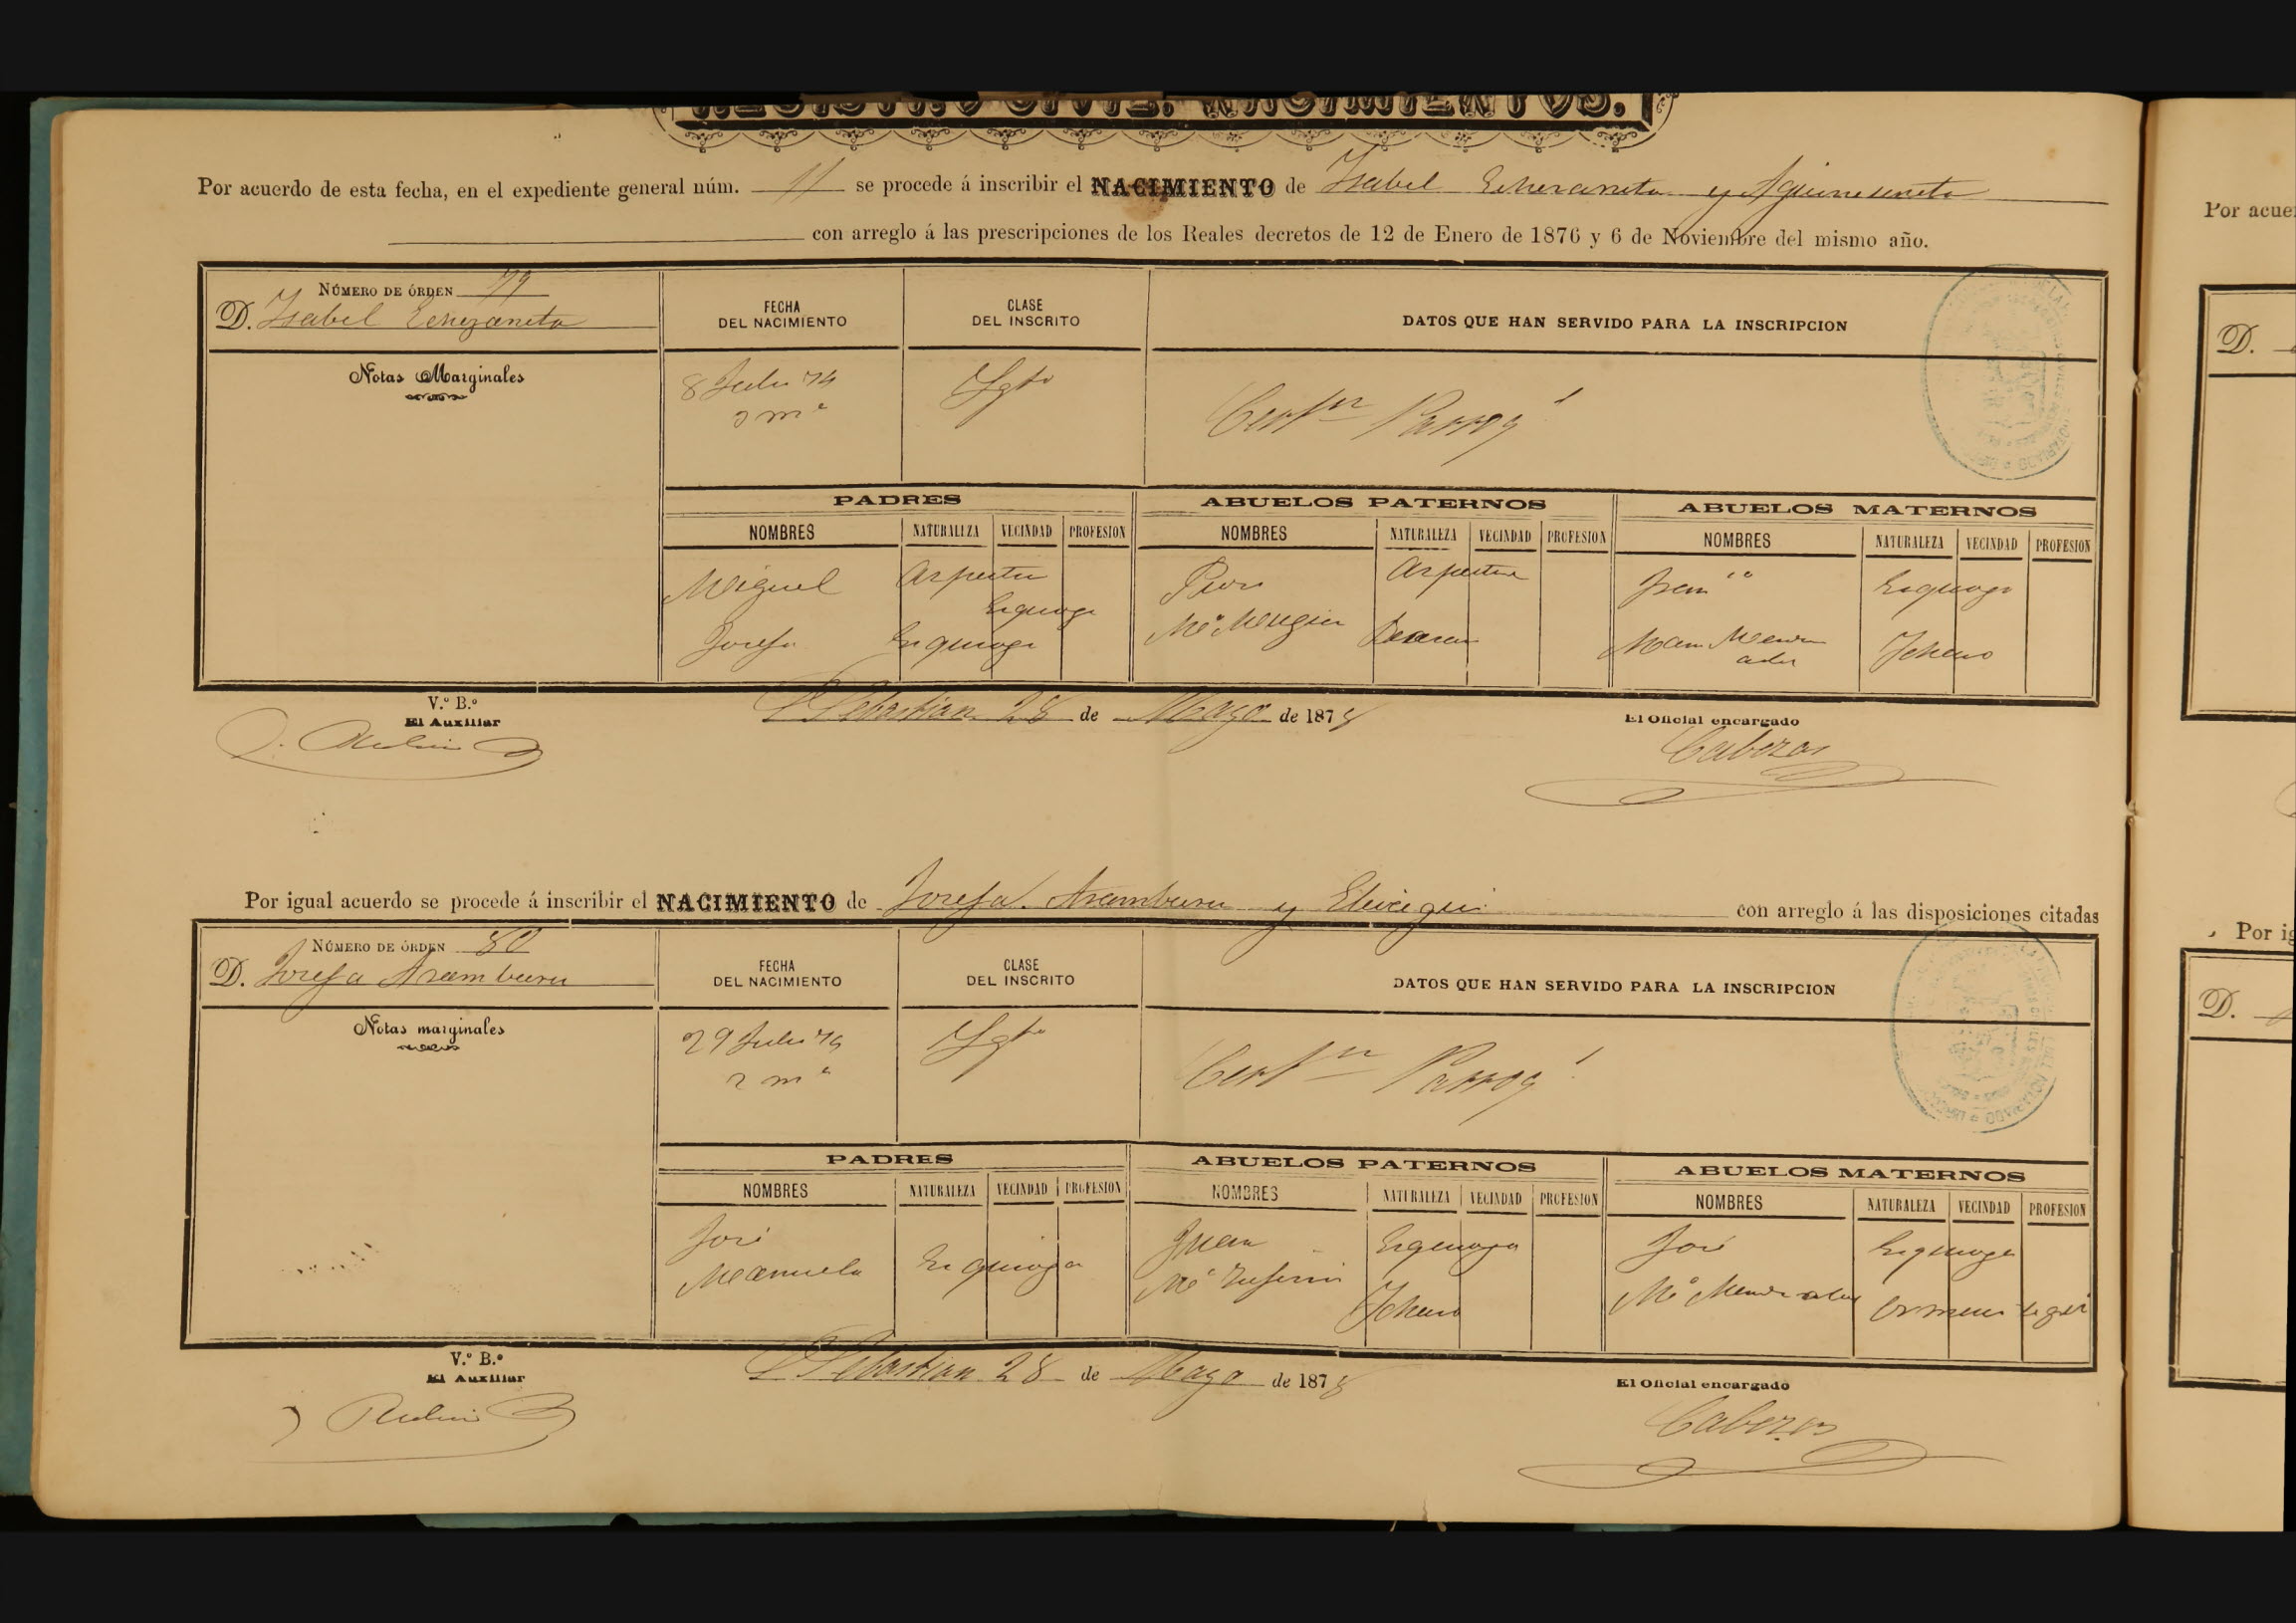 REGISTRO CIVIL. NACIMIENTOS.
Por acuerdo de esta fecha, en el expediente general núm. 11 se procede á inscribir el NACIMIENTO de Isabel Echezarreta y
con arreglo á las prescripciones de los Reales decretos de 12 de Enero de 1876 y 6 de Noviembre del mismo año.
NÚMERO DE ÓRDEN 79
D. Isabel Echezarreta
FECHA DEL NACIMIENTO
CLASE DEL INSCRITO
DATOS QUE HAN SERVIDO PARA LA INSCRIPCION
Notas Marginales
8 Julio 74
Lgto
Certon Parroql
PADRES
ABUELOS PATERNOS
ABUELOS MATERNOS
NOMBRES NATURALEZA VECINDAD PROFESION NOMBRES NATURALEZA VECINDAD PROFESION NOMBRES NATURALEZA VECINDAD PROFESION
Miguel
Ezquioga
Ezquioga
Josefa Ezquioga Ma Ichaso
V.º B.º
El Auxiliar
S Sebastian 28 de Mayo de 1878
El Oficial encargado
Cabezas
Por igual acuerdo se procede á inscribir el NACIMIENTO de Josefa Aramburu y con arreglo á las disposiciones citadas
NÚMERO DE ÓRDEN 80
D. Josefa Aramburu
FECHA DEL NACIMIENTO
CLASE DEL INSCRITO
DATOS QUE HAN SERVIDO PARA LA INSCRIPCION
Notas marginales
29 Julio 74
2 ma
Lgto
Certon Parroql
PADRES
ABUELOS PATERNOS
ABUELOS MATERNOS
NOMBRES NATURALEZA VECINDAD PROFESION NOMBRES NATURALEZA VECINDAD PROFESION NOMBRES NATURALEZA VECINDAD PROFESION
José Juan Ezquioga José Ezquioga
Manuela Ezquioga Ma Ma
Ichaso
V.º B.º
El Auxiliar
S Sebastian 28 de Mayo de 1878
El Oficial encargado
Cabezas
Por acue
D.
Por ig
D.